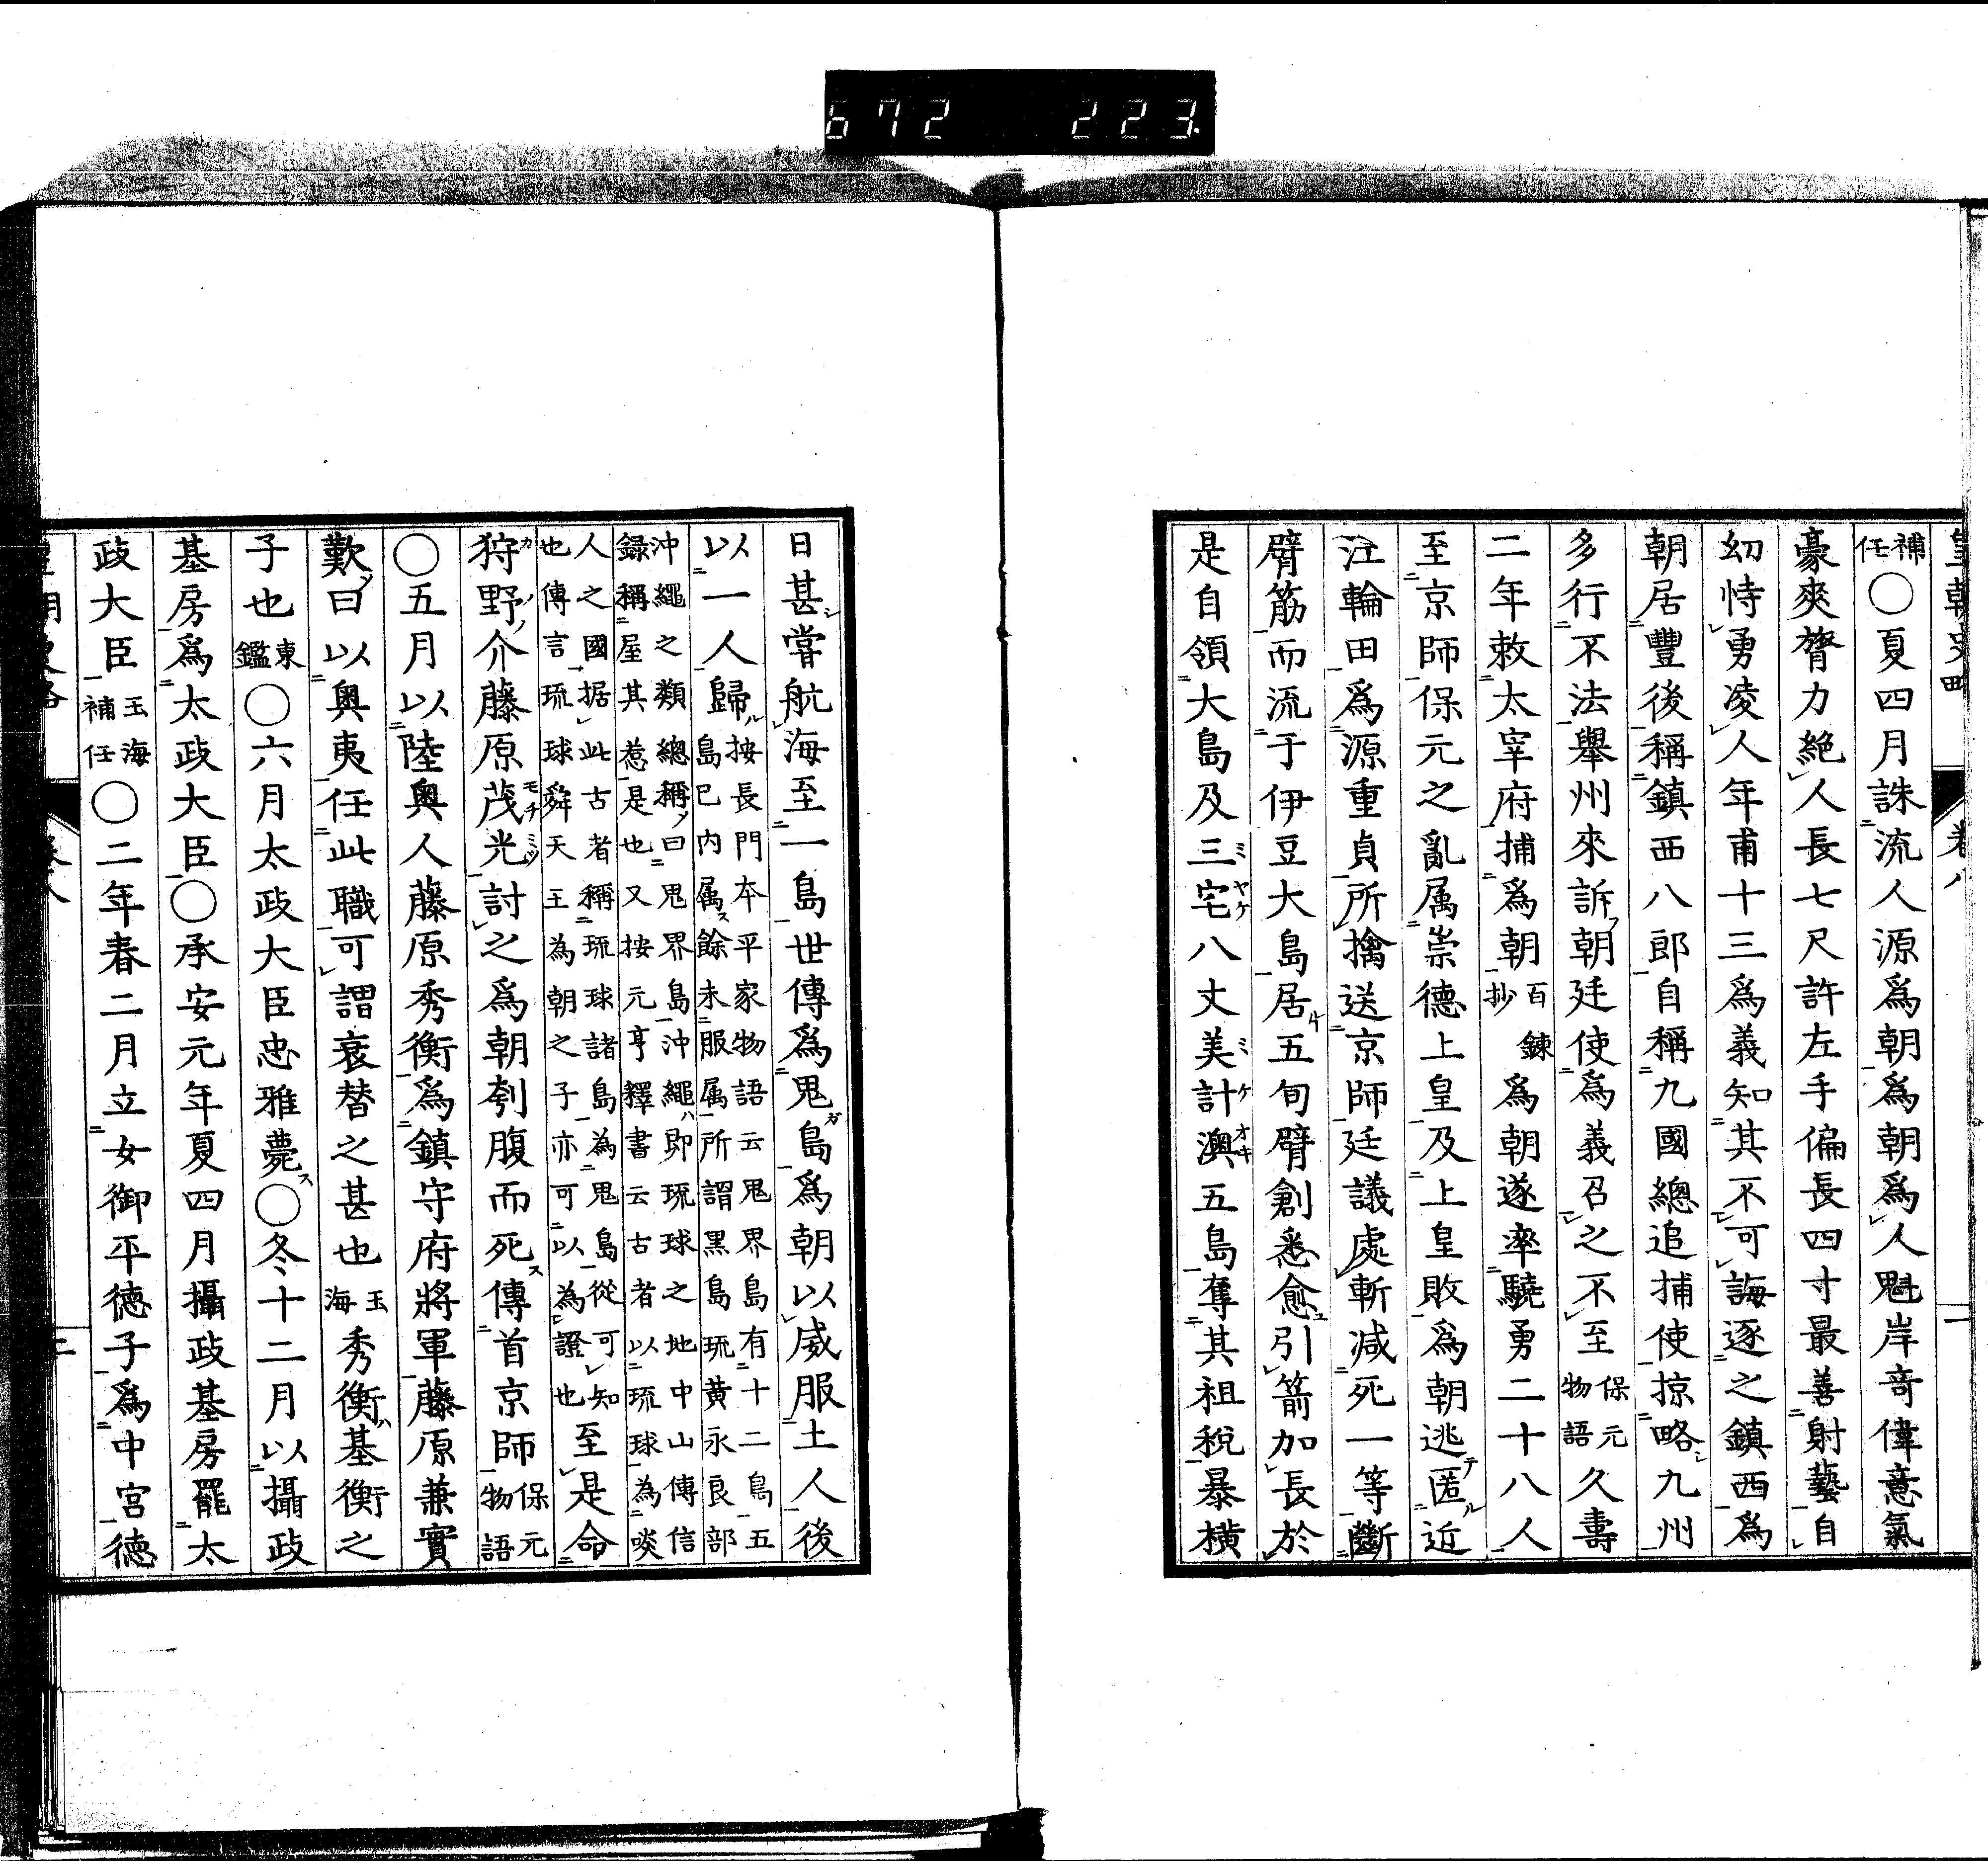 672 223
皇朝史略 卷八
補任〇夏四月誅流人源爲朝爲朝爲人魁岸奇偉意氣
豪爽膂力絶人長七尺許左手偏長四寸最善射藝自
幼恃勇凌人年甫十三爲義知其不可誨逐之鎮西爲
朝居豐後稱鎮西八郎自稱九國總追捕使掠略九州
多行不法舉州來訴朝廷使爲義召之不至保元物語久壽
二年敕太宰府捕爲朝百鍊抄爲朝遂率驍勇二十八人
至京師保元之亂属崇德上皇及上皇敗爲朝逃匿近
江輪田爲源重貞所擒送京師廷議處斬減死一等斷
臂筋而流于伊豆大島居五旬臂創悉愈引箭加長於
是自領大島及三宅八丈美計澳五島奪其租稅暴橫
日甚嘗航海至一島世傳爲鬼島爲朝以威服土人後
以一人歸按長門本平家物語云鬼界島有十二島五島已内属餘未服属所謂黑島琉黄永良部
沖繩之類總稱曰鬼界島沖繩即琉球之地中山傳信録稱屋其惹是也又按元亨釋書云古者以琉球為啖
人之國据此古者稱琉球諸島為鬼島從可知也傳言琉球舜天王為朝之子亦可以為證也至是命
狩野介藤原茂光討之爲朝刳腹而死傳首京師保元物語
〇五月以陸奧人藤原秀衡爲鎮守府將軍藤原兼實
歎曰以奧夷任此職可謂衰替之甚也玉海秀衡基衡之
子也東鑑〇六月太政大臣忠雅薨〇冬十二月以攝政
基房爲太政大臣〇承安元年夏四月攝政基房罷太
政大臣玉海補任〇二年春二月立女御平徳子爲中宮徳